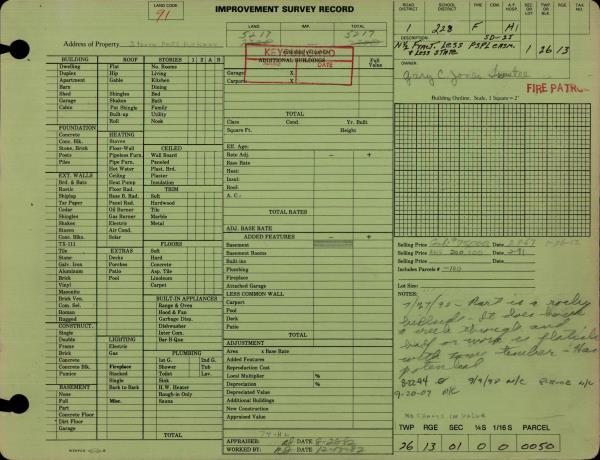 LAND CODE
91
IMPROVEMENT SURVEY RECORD
LAND IMP. TOTAL
5217 5217
Address of Property
KEYPUNCHED
DATE
ADDITIONAL BUILDINGS
Full Value
Garage X
Carport X
TOTAL
Class Cond. Yr. Built
Square Ft. Height
Eff. Age:
Rate Adj. - +
Base Rate
Heat:
Insul:
Roof:
A. C.:
TOTAL RATES
ADJ. BASE RATE
ADDED FEATURES - +
Basement
Basement
Built-ins
Plumbing
Fireplace
Attached Garage
LESS COMMON WALL
Carport
Pool
Deck
Patio
TOTAL
ADJUSTMENT
Area x Base Rate
Added Features
Reproduction Cost
Local Multiplier %
Depreciation %
Depreciated Value
Additional Buildings
New Construction
Appraised Value
APPRAISED: DATE
WORKED BY: DATE
BUILDING ROOF STORIES 1 2 A B
Dwelling Flat No. Rooms
Duplex Hip Living
Apartment Gable Kitchen
Barn Dining
Shed Shingles Bed
Garage Shakes Bath
Cabin Pat Shingle Family
Built-up Utility
Roll Nook
FOUNDATION
Concrete HEATING
Conc. Blk. Stoves
Stone, Brick Floor-Wall CEILED
Posts Pipeless Furn. Wall Board
Piles Pipe Furn. Paneled
Hot Water Plast. Brd.
EXT. WALLS Ceiling Plaster
Brd. & Bats Heat Pump Insulation
Rustic Floor Rad. TRIM
Shiplap Base B. Rad. Soft
Tar Paper Panel Rad. Hardwood
Cedar Oil Burner Tile
Shingles Gas Burner Marble
Shakes Electric Metal
Stucco Air Cond.
Conc. Blks. Solar
TX-111 FLOORS
Tile EXTRAS Soft
Stone Decks Hard
Galv. Iron Porches Concrete
Aluminum Patio Asp. Tile
Brick Pool Linoleum
Vinyl Carpet
Masonite
Brick Ven. BUILT-IN APPLIANCES
Com. Sel. Range & Oven
Roman Hood & Fan
Rugged Garbage Disp.
CONSTRUCT. Dishwasher
Single Inter Com.
Double LIGHTING Bar-B-Que
Frame Electric
Brick Gas PLUMBING
Concrete 1st G. 2nd G.
Concrete Blk. Fireplace Shower Tub
Pumice Stacked Toilet Lav.
Single Sink
BASEMENT Back to Back H.W. Heater
None Rough-in Only
Full Misc. Sauna
Part
Concrete Floor
Dirt Floor
Garage
TOTAL
ROAD DISTRICT SCHOOL DISTRICT FIRE CEM. A.F. HOSP. SEC OR LOT TWP OR BLK RGE TAX NO.
1 228 F H1
DESCRIPTION
N½ Fract. Less PSPL easm.
& Less State
1 26 13
OWNER
Gary C. Jones Trustee
FIRE PATROL
Building Outline, Scale, 1 Square = 2'
Selling Price
Selling Price 200,000 2-91
Selling Price
Includes Parcels # -100
Lot Size:
NOTES:
7/27/90 - Part is a rocky
hillside - It does have
a creek through and
half or more is
with some timber - Has
potential
8-20-07
NO CHANGE IN VALUE
TWP RGE SEC ¼ S 1/16 S PARCEL
26 13 01 0 0 0050